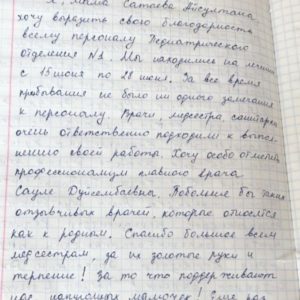 Я, мама Сатаева Айсултана
хочу выразить свою благодарность
всему персоналу Педиатрического
отделения №1. Мы находились на лечении
с 15 июня по 28 июня. За все время
пребывания не было ни одного замечания
к персоналу. Врачи, медсестра, санитарки
очень ответственно подходили к выпол-
нению своей работы. Хочу особо отметить
профессионализм главного врача
Сауле Дуйсенбаевны. Побольше бы таких
отзывчивых врачей, которые относятся
как к родным. Спасибо большое всем
медсестрам, за их золотые руки и
терпение! За то что поддерживают
нас мамочек! Еще раз